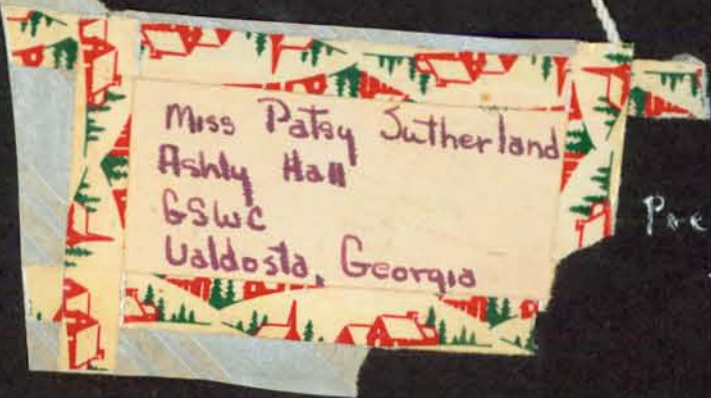 Miss Patsy Sutherland
Ashly Hall
GSWC
Valdosta, Georgia
Pre